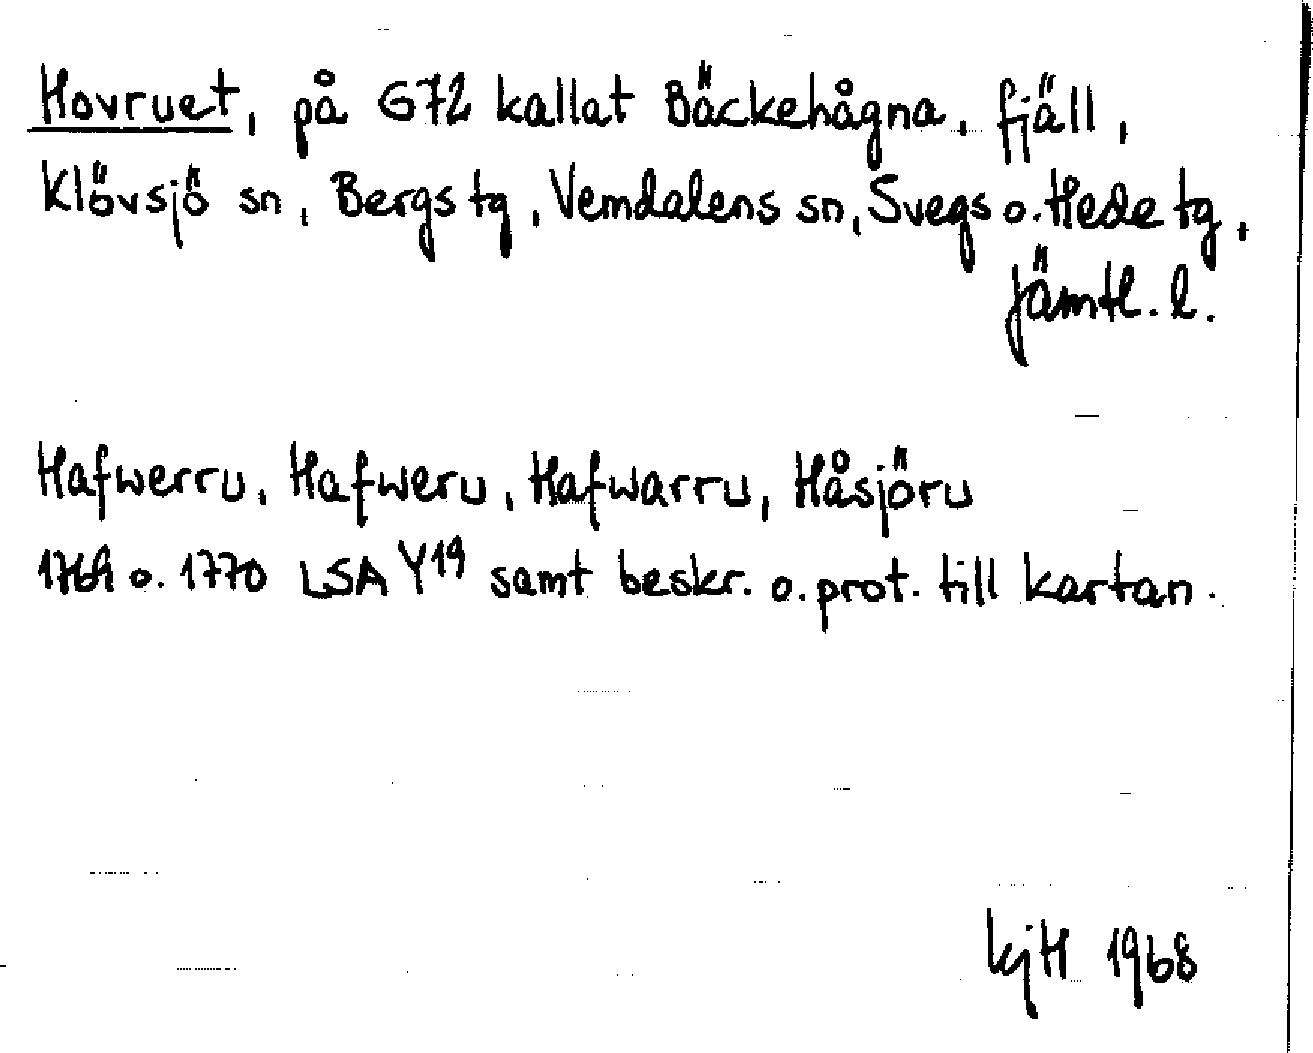 Hovruet, på G72 kallat Bäckehågna, fjäll,
Klövsjö sn, Bergs tg, Vemdalens sn, Svegs o. Hede tg,
Jämtl. l.
Hafwerru, Hafweru, Hafwarru, Håsjöru
1769 o. 1770 LSA Y19 samt beskr. o. prot. till kartan.
KjH 1968